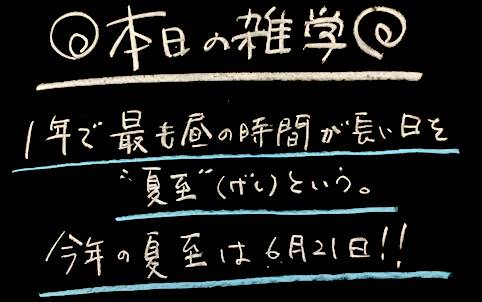 本日の雑学
1年で最も昼の時間が長い日を
"夏至"(げし)という。
今年の夏至は6月21日!!